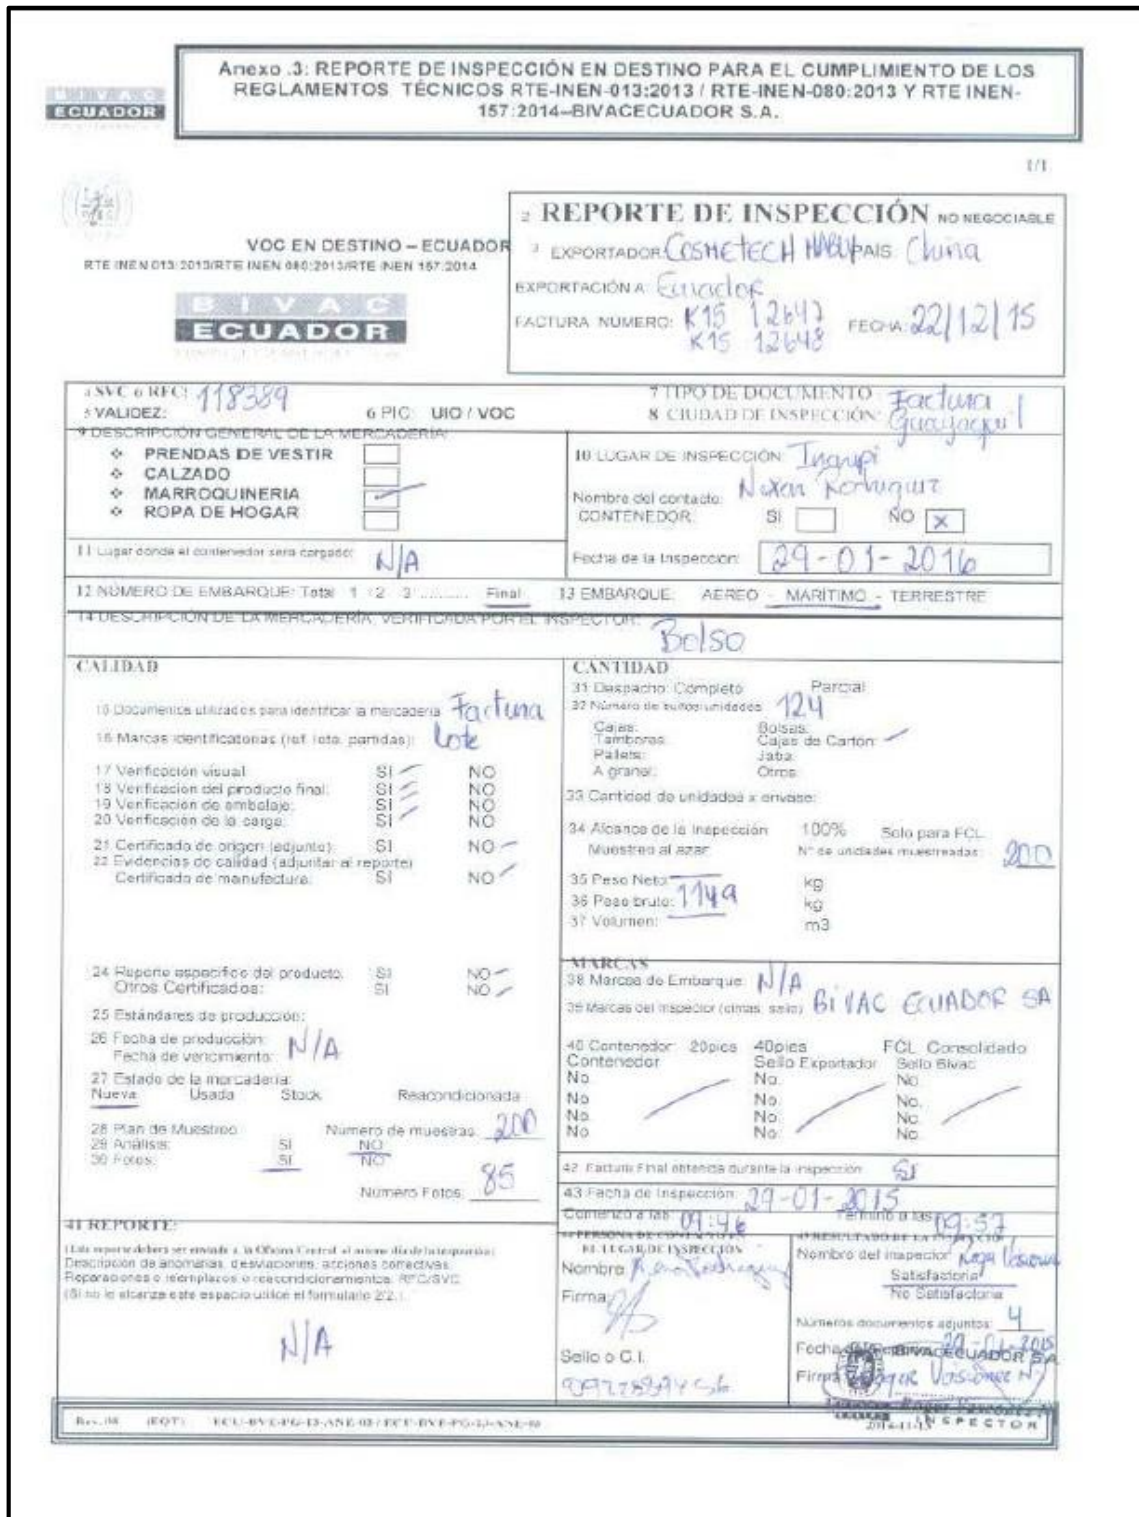 BIVAC
ECUADOR
Anexo .3: REPORTE DE INSPECCIÓN EN DESTINO PARA EL CUMPLIMIENTO DE LOS
REGLAMENTOS TÉCNICOS RTE-INEN-013:2013 / RTE-INEN-080:2013 Y RTE INEN-
157:2014–BIVACECUADOR S.A.
1/1
VOC EN DESTINO – ECUADOR
RTE INEN 013:2013/RTE INEN 080:2013/RTE INEN 157:2014
BIVAC
ECUADOR
2 REPORTE DE INSPECCIÓN NO NEGOCIABLE
3 EXPORTADOR: COSMETECH PAIS: China
EXPORTACIÓN A: Ecuador
FACTURA NUMERO: K15 12647 FECHA: 22/12/15
K15 12648
4 SVC o RFC: 118389
5 VALIDEZ: 6 PIC: UIO / VOC
7 TIPO DE DOCUMENTO: Factura
8 CIUDAD DE INSPECCIÓN: Guayaquil
9 DESCRIPCIÓN GENERAL DE LA MERCADERÍA:
PRENDAS DE VESTIR
CALZADO
MARROQUINERIA
ROPA DE HOGAR
10 LUGAR DE INSPECCIÓN: Inarpi
Nombre del contacto: Rodriguez
CONTENEDOR: SI NO X
11 Lugar donde el contenedor será cargado: N/A
Fecha de la Inspección: 29-01-2016
12 NÚMERO DE EMBARQUE: Total 1 2 3 ......... Final
13 EMBARQUE: AEREO - MARÍTIMO - TERRESTRE
14 DESCRIPCIÓN DE LA MERCADERÍA, VERIFICADA POR EL INSPECTOR: Bolso
CALIDAD
15 Documentos utilizados para identificar la mercadería: Factura
16 Marcas identificatorias (ref. lote, partidas): Lote
17 Verificación visual SI NO
18 Verificación del producto final: SI NO
19 Verificación de embalaje: SI NO
20 Verificación de la carga: SI NO
21 Certificado de origen (adjunto): SI NO
22 Evidencias de calidad (adjuntar al reporte)
Certificado de manufactura: SI NO
24 Reporte especifico del producto: SI NO
Otros Certificados: SI NO
25 Estándares de producción:
26 Fecha de producción: N/A
Fecha de vencimiento:
27 Estado de la mercadería:
Nueva Usada Stock Reacondicionada
28 Plan de Muestreo Numero de muestras: 200
29 Análisis: SI NO
30 Fotos: SI NO
Número Fotos: 85
CANTIDAD
31 Despacho: Completo Parcial
32 Número de bultos/unidades: 124
Cajas: Bolsas:
Tambores: Cajas de Cartón:
Pallets: Jaba:
A granel: Otros:
33 Cantidad de unidades x envase:
34 Alcance de la Inspección 100% Solo para FCL
Muestreo al azar: N° de unidades muestreadas: 200
35 Peso Neto: kg
36 Peso bruto: 1149 kg
37 Volumen: m3
MARCAS
38 Marcas de Embarque: N/A
39 Marcas del inspector (cintas, sello) BIVAC ECUADOR SA
40 Contenedor: 20pies 40pies FCL Consolidado
Contenedor Sello Exportador Sello Bivac
No. No. No.
No. No. No.
No. No. No.
No. No. No.
42 Factura Final obtenida durante la inspección: SI
43 Fecha de Inspección: 29-01-2015
Comenzó a las: 09:46 Terminó a las: 09:57
41 REPORTE:
(Este reporte deberá ser enviado a la Oficina Central el mismo día de la inspección)
Descripción de anomalías, desviaciones, acciones correctivas,
Reparaciones o reemplazos o reacondicionamientos. RFC/SVC
(Si no le alcanza este espacio utilice el formulario 2/2.)
N/A
44 PERSONA DE CONTACTO EN
EL LUGAR DE INSPECCIÓN
Nombre: Rodriguez
Firma:
Sello o C.I.
45 RESULTADO DE LA INSPECCIÓN
Nombre del inspector:
Satisfactoria
No Satisfactoria
Números documentos adjuntos: 4
Fecha: 29-01-2015
BIVACECUADOR S.A
Firma
INSPECTOR
Rev. 08 (EQT)
2014-11-13